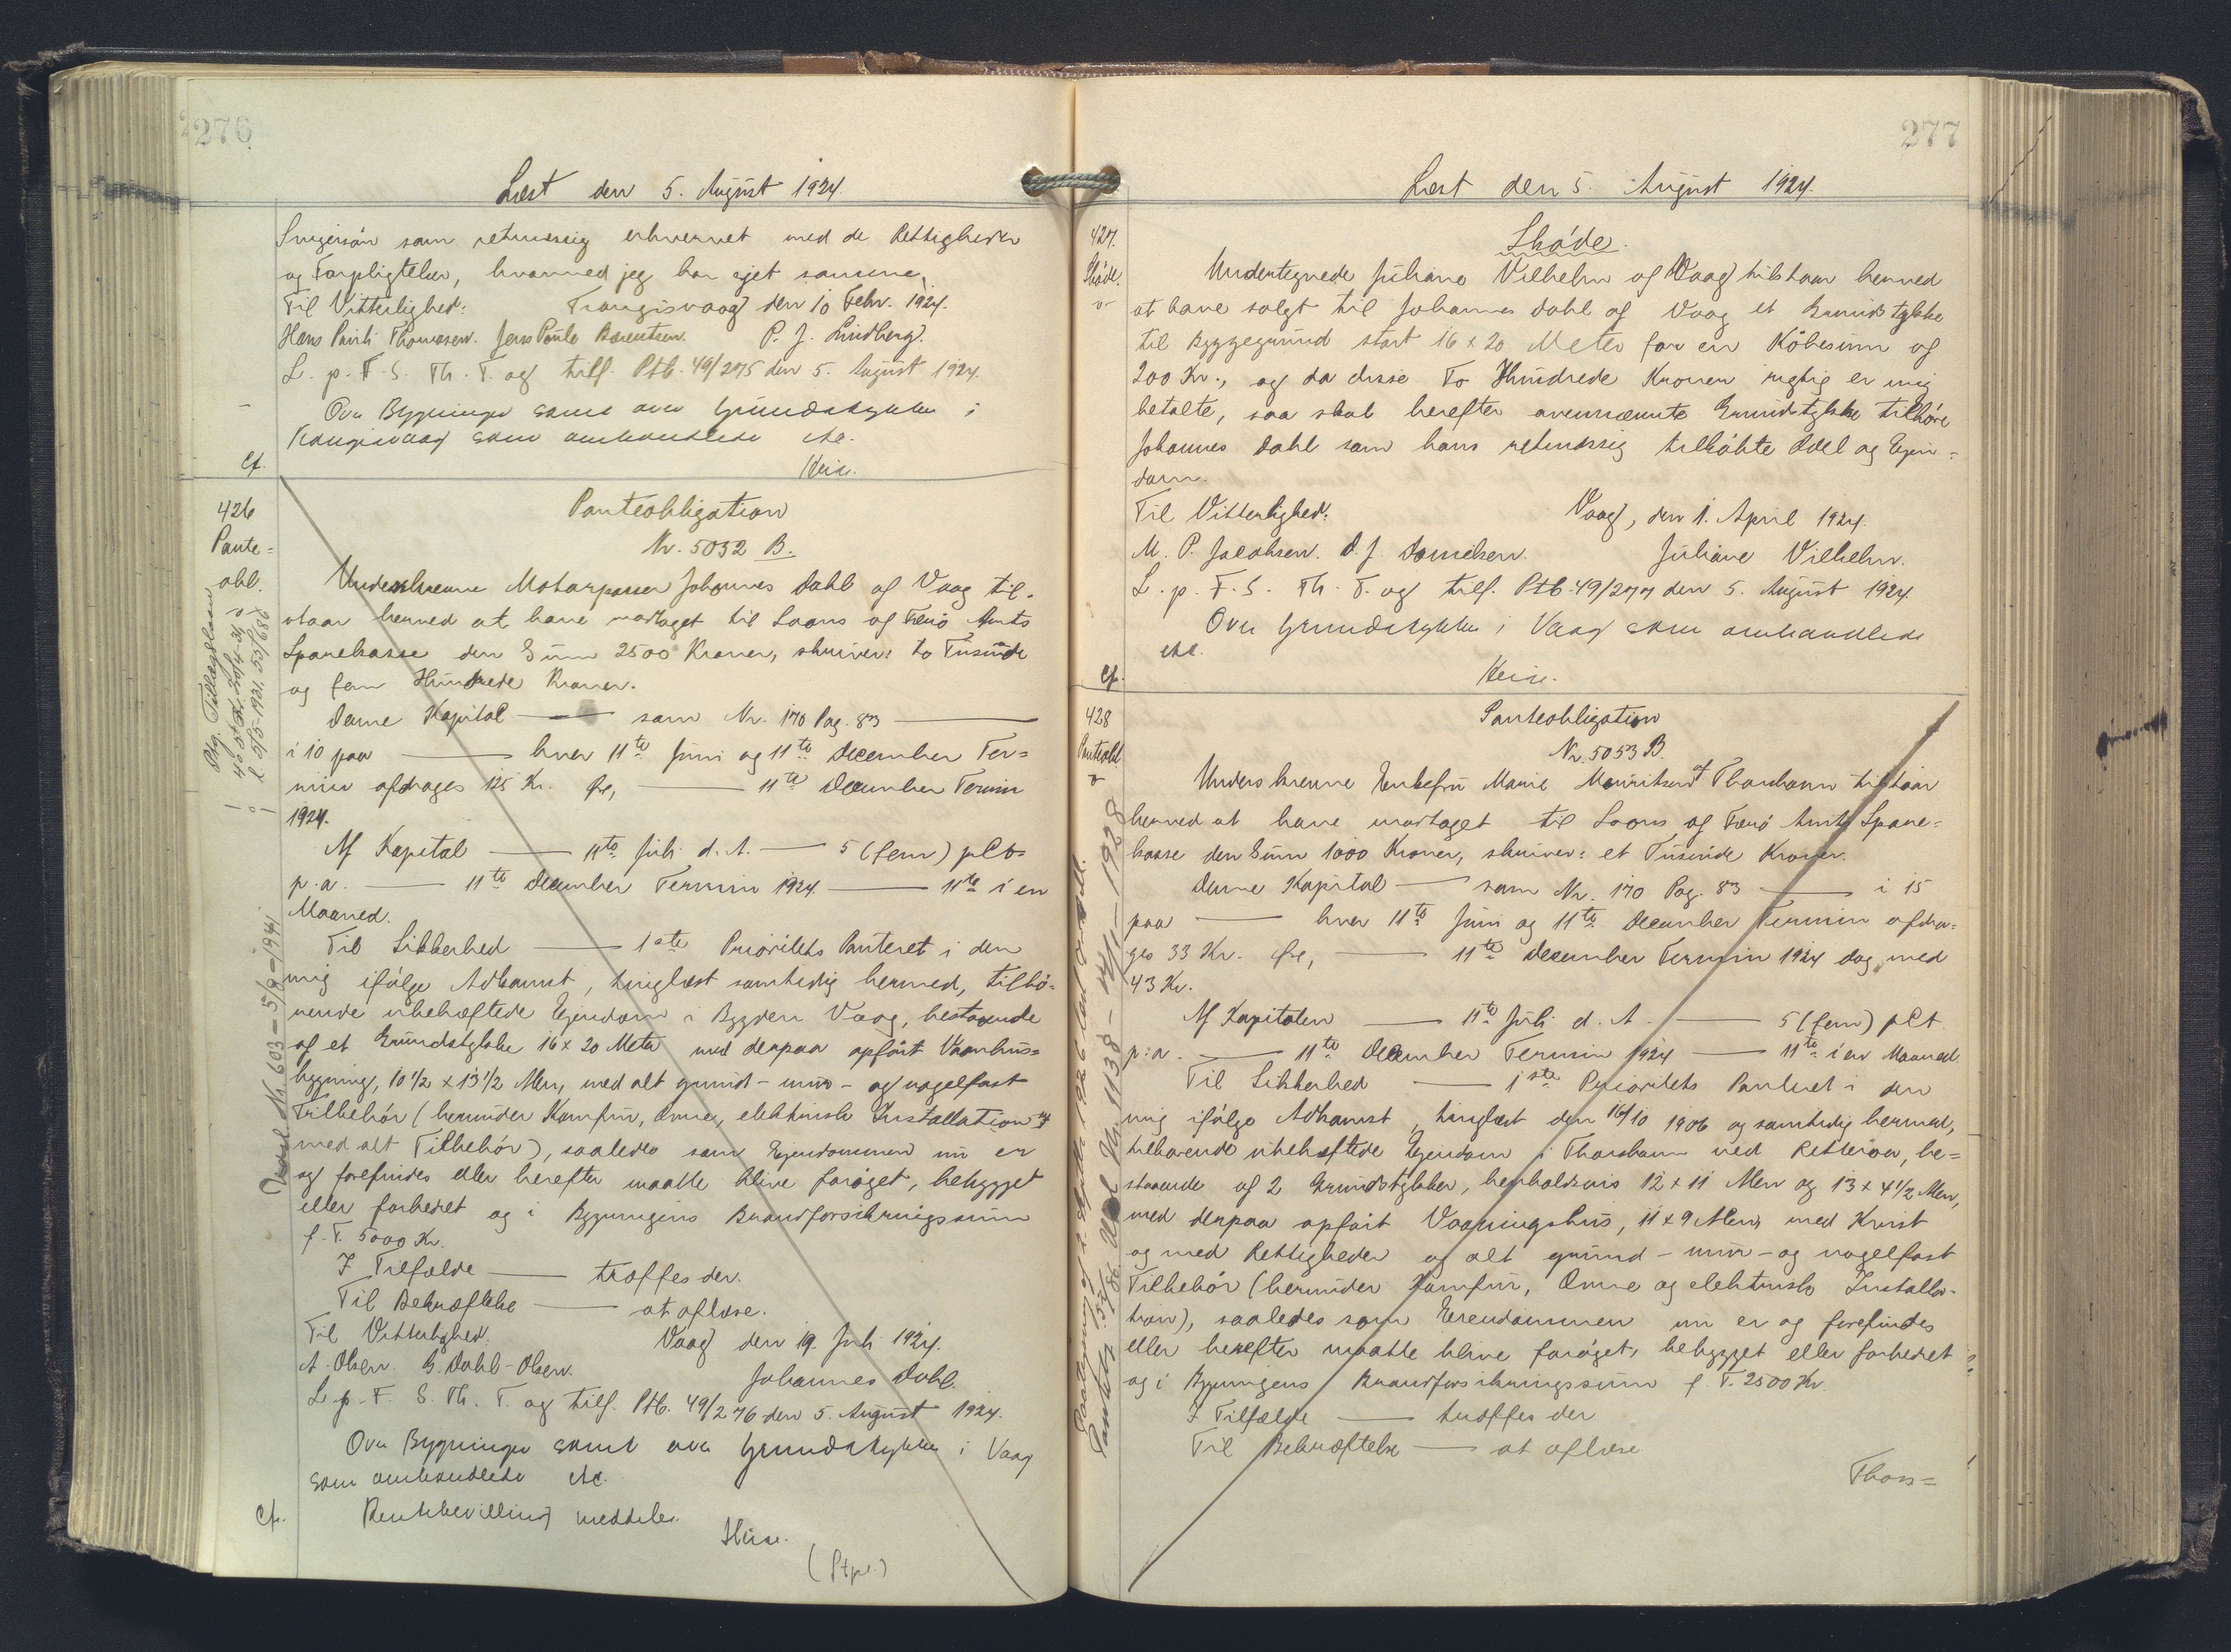 276
Læst den 5. August 1924.
som retmæssig erhvervet med de Rettigheder
og Forpligtelser, hvormed jeg har ejet samme.
Til Vitterlighed: Trangisvaag den 10 Febr. 1924.
Hans Pauli Thomasen. Jens Paule Berentsen. P. J. Lindberg.
L. p. F. S. Th. T. og tilf. Ptb. 49/275 den 5. August 1924.
Over Bygninger samt over Grundstykker i
Trangisvaag som omhandlede etc.
Cf. Heise.
426
Pante=
obl.
Panteobligation
Nr. 5032 B.
Underskrevne Motorpasser Johannes Dahl af Vaag til-
staar herved at have modtaget til Laans af Færø Amts
Sparekasse den Sum 2500 Kroner, skriver: to Tusinde
og fem Hundrede Kroner.
Denne Kapital — som Nr. 170 Pag. 83 —
i 10 paa — hver 11te Juni og 11te December Ter=
min afdrages 125 Kr. Øre, — 11te December Termin
1924.
Af Kapital — 11te Juli d. A. — 5 (fem) pCt=
p. a. — 11te December Termin 1924 — 11te i en
Maaned.
Til Sikkerhed — 1ste Prioritets Panteret i den
mig ifølge Adkomst, tinglæst samtidig hermed, tilhø-
rende ubehæftede Ejendom i Bygden Vaag, bestaaende
af et Grundstykke 16 x 20 Meter med derpaa opført Vaanhus=
bygning, 10 1/2 x 13 1/2 Alen, med alt grund- mur- og nagelfast
Tilbehør (herunder Komfur, Ovne, elektrisk Installation
med alt Tilbehør), saaledes som Ejendommen nu er
og forefindes eller herefter maatte blive forøget, bebygget
eller forbedret og i Bygningens Brandforsikringssum
f. T. 5000 Kr.
I Tilfælde — træffes der.
Til Bekræftelse — at aflæse.
Til Vitterlighed. Vaag den 19. Juli 1924.
A. Olsen. G. Dahl-Olsen. Johannes Dahl.
L. p. F. S. Th. T. og tilf. Ptb. 49/276 den 5. August 1924.
Over Bygninger samt over Grundstykker i Vaag
som omhandlede etc.
Cf. Rentebevilling meddeles.
Heise.
(Ptpr.)
Udsl. Nr. 603 - 5/9 - 1941
277
Læst den 5. August 1924.
427.
Skøde.
Skøde.
Undertegnede Juliane Vilhelm af Vaag tilstaar herved
at have solgt til Johannes Dahl af Vaag et Grundstykke
til Byggegrund stort 16 x 20 Meter for en Købesum af
200 Kr., og da disse To Hundrede Kroner rigtig er mig
betalte, saa skal herefter ovennævnte Grundstykke tilhøre
Johannes Dahl som hans retmæssig tilkøbte Odel og Ejen=
dom.
Til Vitterlighed: Vaag, den 1. April 1924.
M. P. Jacobsen. D. J. Danielsen. Juliane Vilhelm.
L. p. F. S. Th. T. og tilf. Ptb. 49/277 den 5. August 1924.
Over Grundstykke i Vaag som omhandlede
etc.
Cf. Heise.
428
Panteobl.
Panteobligation
Nr. 5053 B.
Underskrevne Enkefru Marie Mouritsen af Thorshavn tilstaar
herved at have modtaget til Laans af Færø Amts Spare=
kasse den Sum 1000 Kroner, skriver: et Tusinde Kroner.
Denne Kapital — som Nr. 170 Pag. 83 — i 15
paa — hver 11te Juni og 11te December Termin afdra=
ges 33 Kr. Øre, — 11te December Termin 1924 dog med
43 Kr.
Af Kapitalen — 11te Juli d. A. — 5 (fem) pCt.
p. a. — 11te December Termin 1924 — 11te i en Maaned.
Til Sikkerhed — 1ste Prioritets Panteret i den
mig ifølge Adkomst, tinglæst den 16/10 1906 og samtidig hermed,
tilhørende ubehæftede Ejendom i Thorshavn ved Retteraa, be=
staaende af 2 Grundstykker, henholdsvis 12 x 11 Alen og 13 x 4 1/2 Alen,
med derpaa opført Vaaningshus, 11 x 9 Alen, med Kvist
og med Rettigheder og alt grund- mur- og nagelfast
Tilbehør (herunder Komfur, Ovne og elektrisk Installa-
tion), saaledes som Ejendommen nu er og forefindes
eller herefter maatte blive forøget, bebygget eller forbedret
og i Bygningens Brandforsikringssum f. T. 2500 Kr.
I Tilfælde — træffes der
Til Bekræftelse — at aflæse
Thors=
Udsl. Nr. 1138 - - 1928